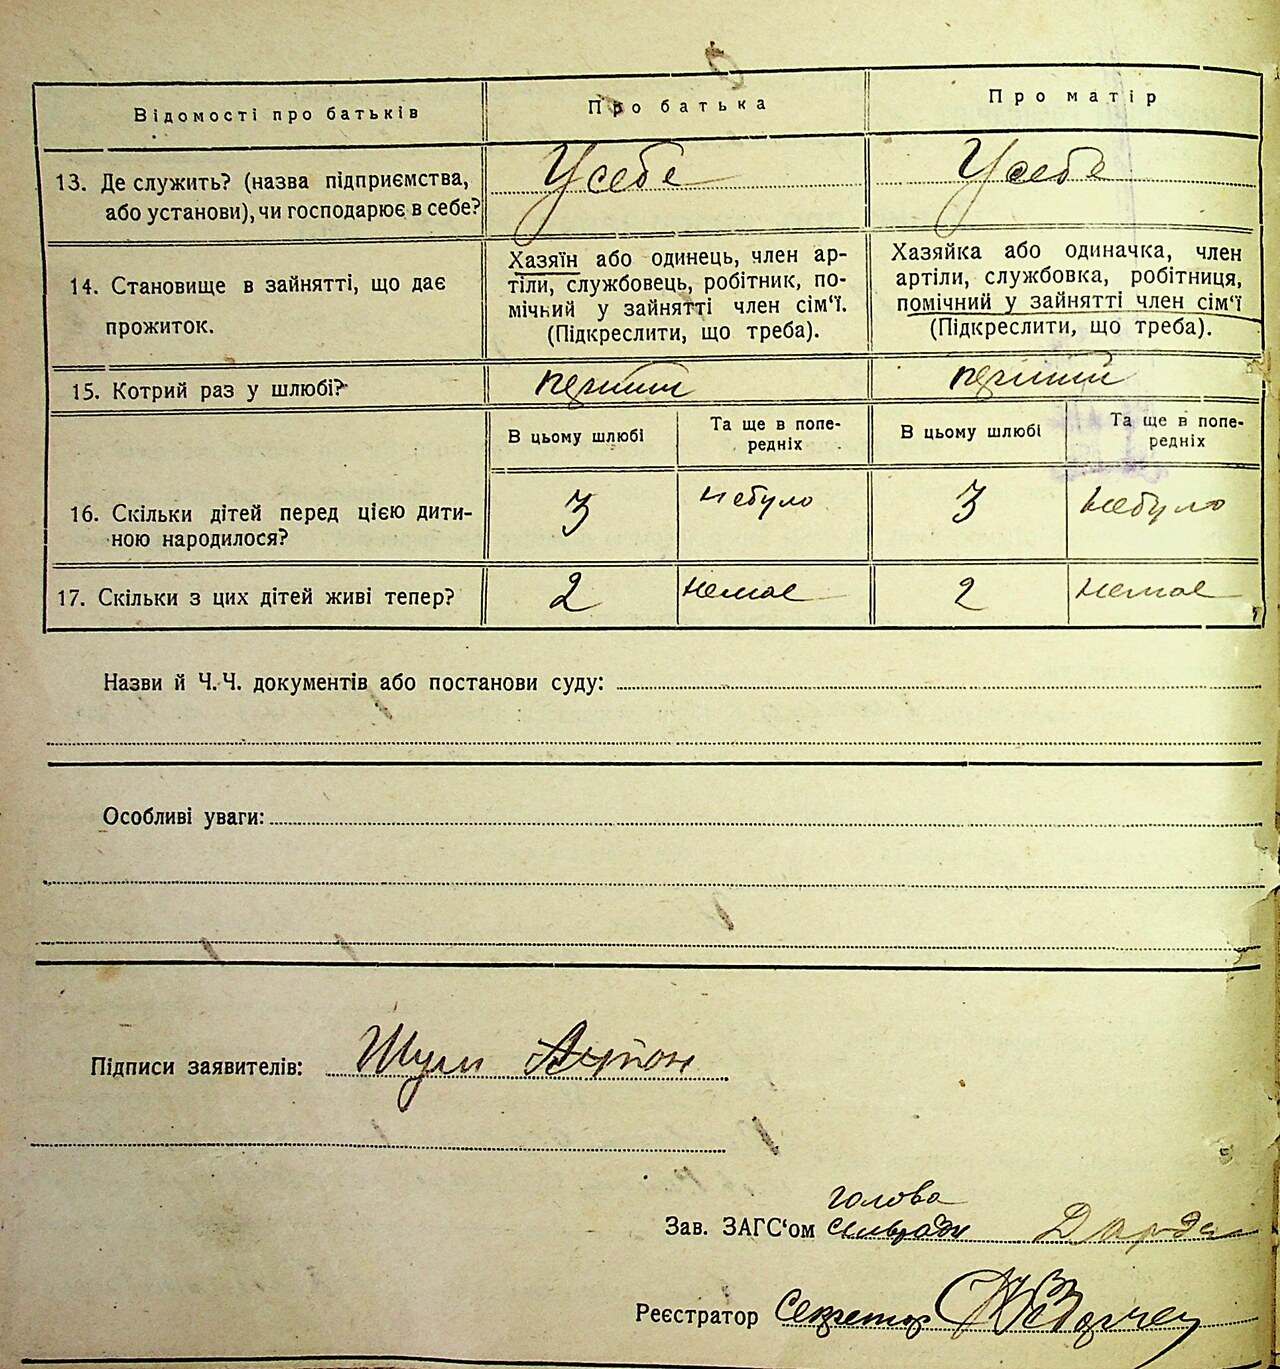 Відомості про батьків
Про батька
Про матір
13. Де служить? (назва підприємства,
або установи), чи господарює в себе?
У себе
У себе
14. Становище в зайнятті, що дає
прожиток.
Хазяїн або одинець, член ар-
тіли, службовець, робітник, по-
мічний у зайнятті член сім‘ї.
(Підкреслити, що треба).
Хазяйка або одиначка, член
артіли, службовка, робітниця,
помічний у зайнятті член сім‘ї
(Підкреслити, що треба).
15. Котрий раз у шлюбі?
перший
перший
В цьому шлюбі
Та ще в попе-
редніх
В цьому шлюбі
Та ще в попе-
редніх
16. Скільки дітей перед цією дити-
ною народилося?
3
небуло
3
небуло
17. Скільки з цих дітей живі тепер?
2
немає
2
немає
Назви й Ч.Ч. документів або постанови суду:
Особливі уваги:
Підписи заявителів: Шум Антон
голова
Зав. ЗАГС‘ом сільради Дарда
Реєстратор Секретар